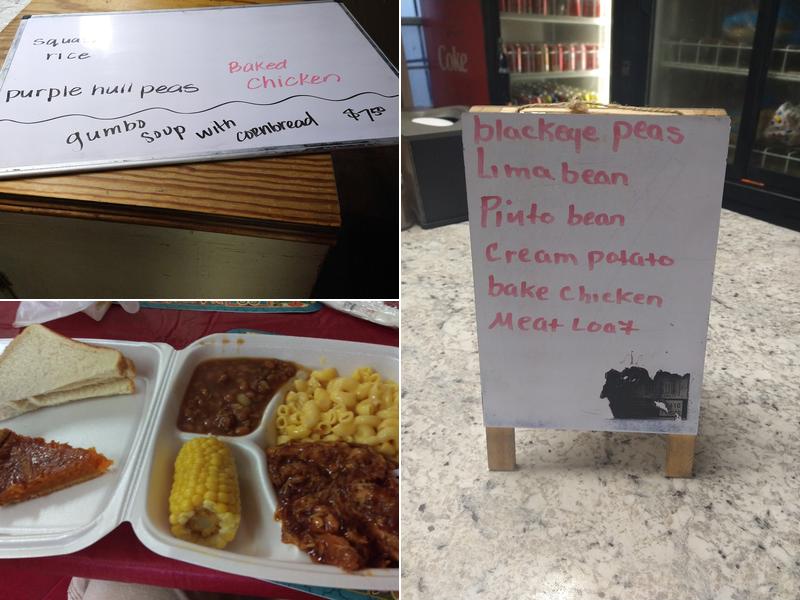 rice
purple hull peas
Baked
Chicken
gumbo soup with cornbread $7.50
Coke
blackeye peas
Lima bean
Pinto bean
Cream potato
bake chicken
Meat Loaf